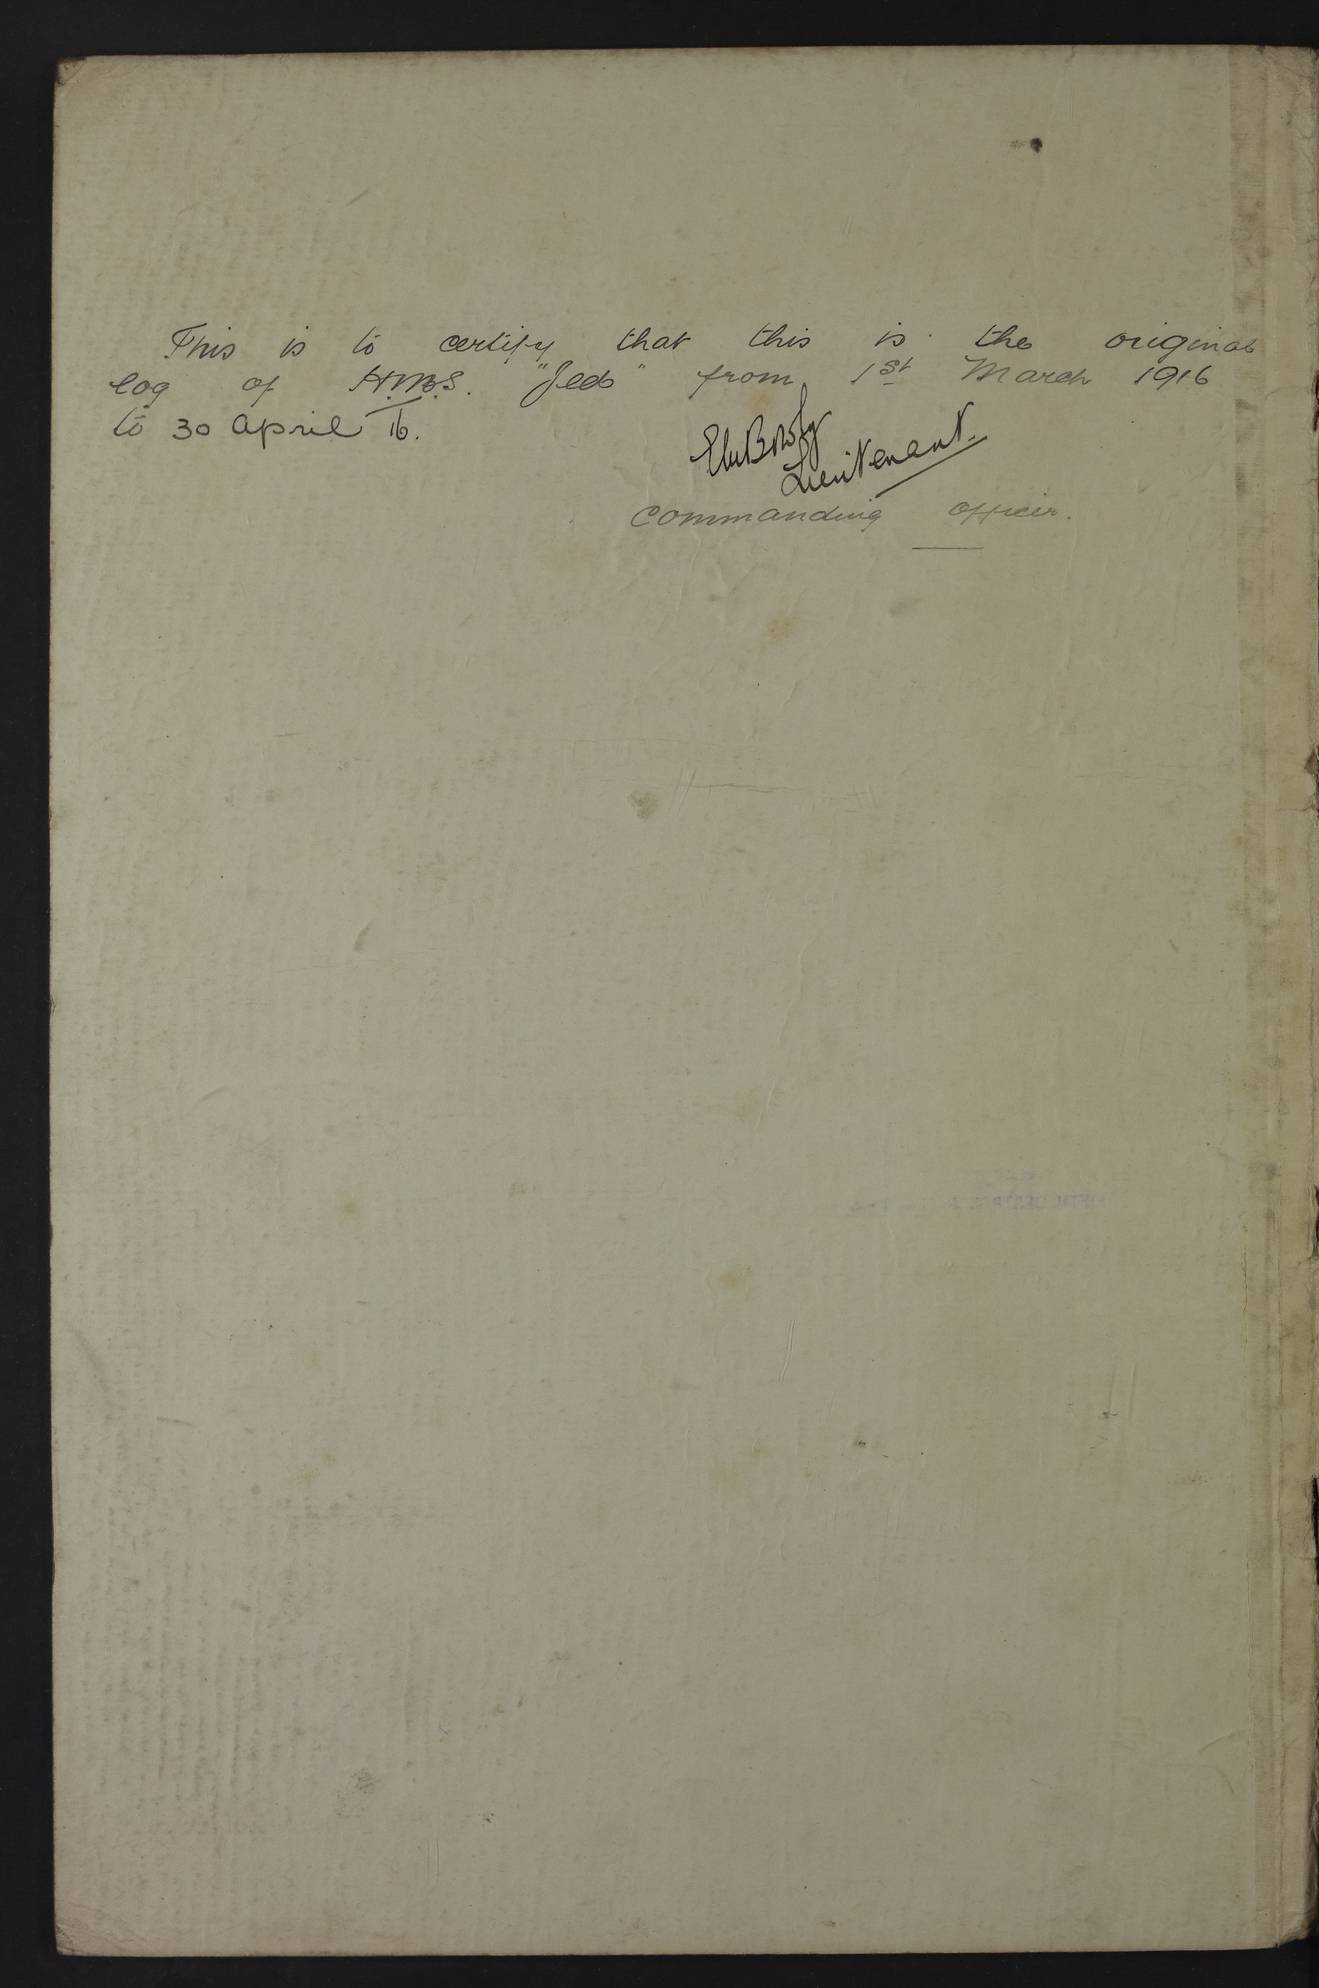 This is to certify that this is the original
log of H.M.S. "Jed" from 1st March 1916
to 30 April 16.
Lieutenant.
Commanding Officer.